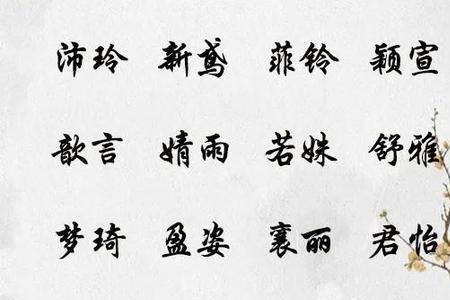 沛玲 新鸢 菲铃 颖宣
歆言 婧雨 若姝 舒雅
梦琦 盈姿 襄丽 君怡